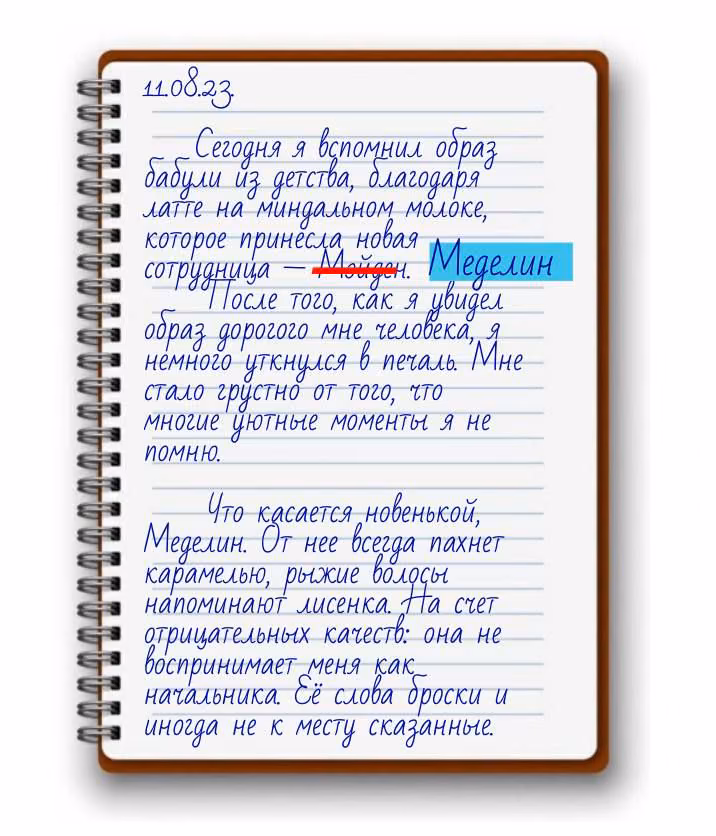 11.08.23.
Сегодня я вспомнил образ
бабули из детства, благодаря
латте на миндальном молоке,
которое принесла новая
сотрудница — Мэйден. Меделин
После того, как я увидел
образ дорогого мне человека, я
немного уткнулся в печаль. Мне
стало грустно от того, что
многие уютные моменты я не
помню.
Что касается новенькой,
Меделин. От нее всегда пахнет
карамелью, рыжие волосы
напоминают лисенка. На счет
отрицательных качеств: она не
воспринимает меня как
начальника. Её слова броски и
иногда не к месту сказанные.